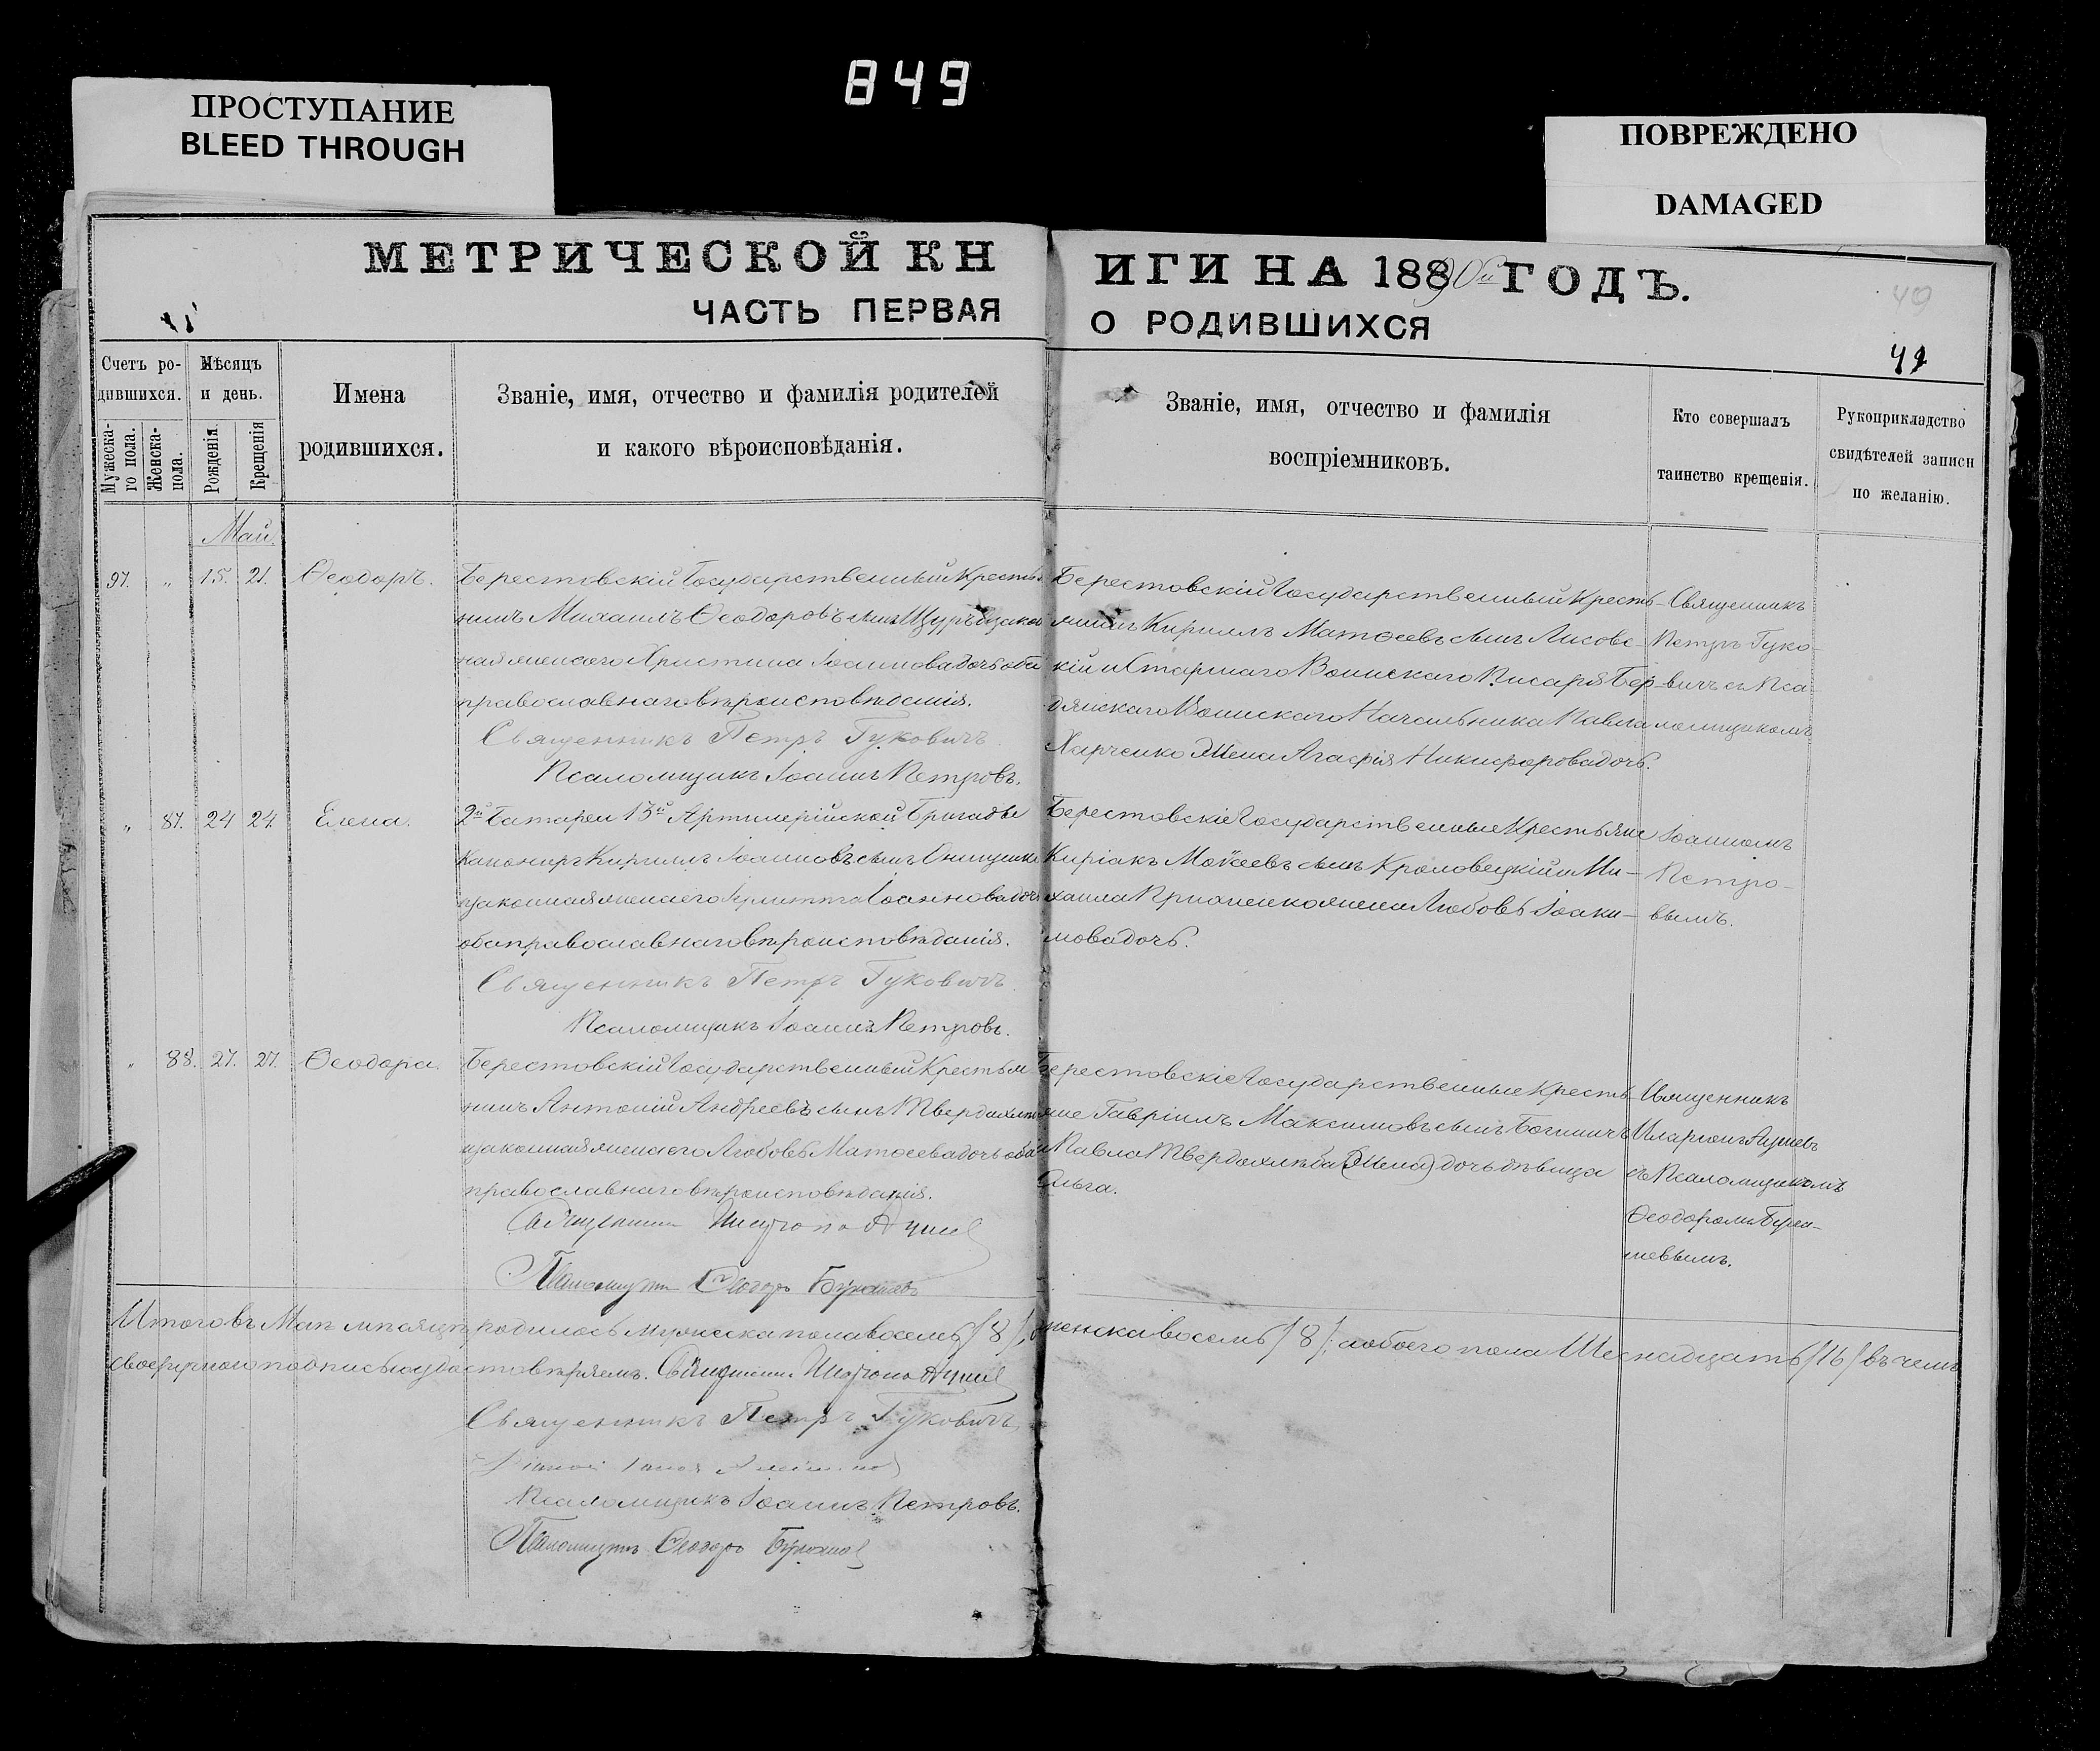 849
ПРОСТУПАНИЕ
BLEED THROUGH
ПОВРЕЖДЕНО
DAMAGED
МЕТРИЧЕСКОЙ КН
ЧАСТЬ ПЕРВАЯ
ИГИ НА 1890й ГОДЪ.
О РОДИВШИХСЯ
49
Счетъ ро-
дившихся.
Мужеска-
го пола.
Женска-
пола.
Мѣсяцъ
и день.
Рожденія
Крещенія
Имена
родившихся.
Званіе, имя, отчество и фамилія родителей
и какого вѣроисповѣданія.
Званіе, имя, отчество и фамилія
воспріемниковъ.
Кто совершалъ
таинство крещенія.
Рукоприкладство
свидѣтелей записи
по желанію.
Май.
97. " 15. 21. Ѳеодоръ.
Берестовскій Государственный Крестья
нинъ Михаилъ Ѳеодоровъ сынъ
ная жена его Христина Іоаннова дочь оба
православнаго вѣроисповѣданія.
Священникъ Петръ Гуковичъ.
Псаломщикъ Іоаннъ Петровъ.
Берестовскій Государственный Кресть-
янинъ Кириллъ Матѳеевъ сынъ Лисовс-
кій и Старшаго Воинскаго Писаря Бер-
дянскаго Воинскаго Начальника Павла
Харченко жена Агафія Никифорова дочь.
Священникъ
Петръ Гуко-
вичъ съ Пса-
ломщикомъ
" 87. 24 24. Елена.
2й Батареи 13й Артилерійской Бригады
Канониръ Кириллъ Іоанновъ сынъ
законная жена его Іоаннова дочь
оба православнаго вѣроисповѣданія.
Священникъ Петръ Гуковичъ.
Псаломщикъ Іоаннъ Петровъ.
Берестовскіе Государственные Крестьяне
Киріакъ Моѵсеевъ сынъ Кроловецкій и Ми-
хаила жена Любовь Іоаки-
мова дочь.
Іоанномъ
Петро-
вымъ.
" 88. 27. 27. Ѳеодора.
Берестовскій Государственный Крестья
нинъ Антоній Андреевъ сынъ Твердохлѣбъ
и законная жена его Любовь Матѳеева дочь оба
православнаго вѣроисповѣданія.
Священникъ
Псаломщикъ Ѳеодоръ
Берестовскіе Государственные Кресть-
яне Гавріилъ Максимовъ сынъ
и Павла Твердохлѣба (жена) дочь дѣвица
Ольга.
Священникъ
Иларіонъ
съ Псаломщикомъ
Ѳеодоромъ
Итого въ Маѣ мѣсяцѣ родилось мужеска пола восемь /8/, женска восемь /8/; а обоего пола Шеснадцать /16/ въ чемъ
своеручною подписью удостовѣряемъ. Священникъ
Священникъ Петръ Гуковичъ
Псаломщикъ Іоаннъ Петровъ.
Псаломщикъ Ѳеодоръ